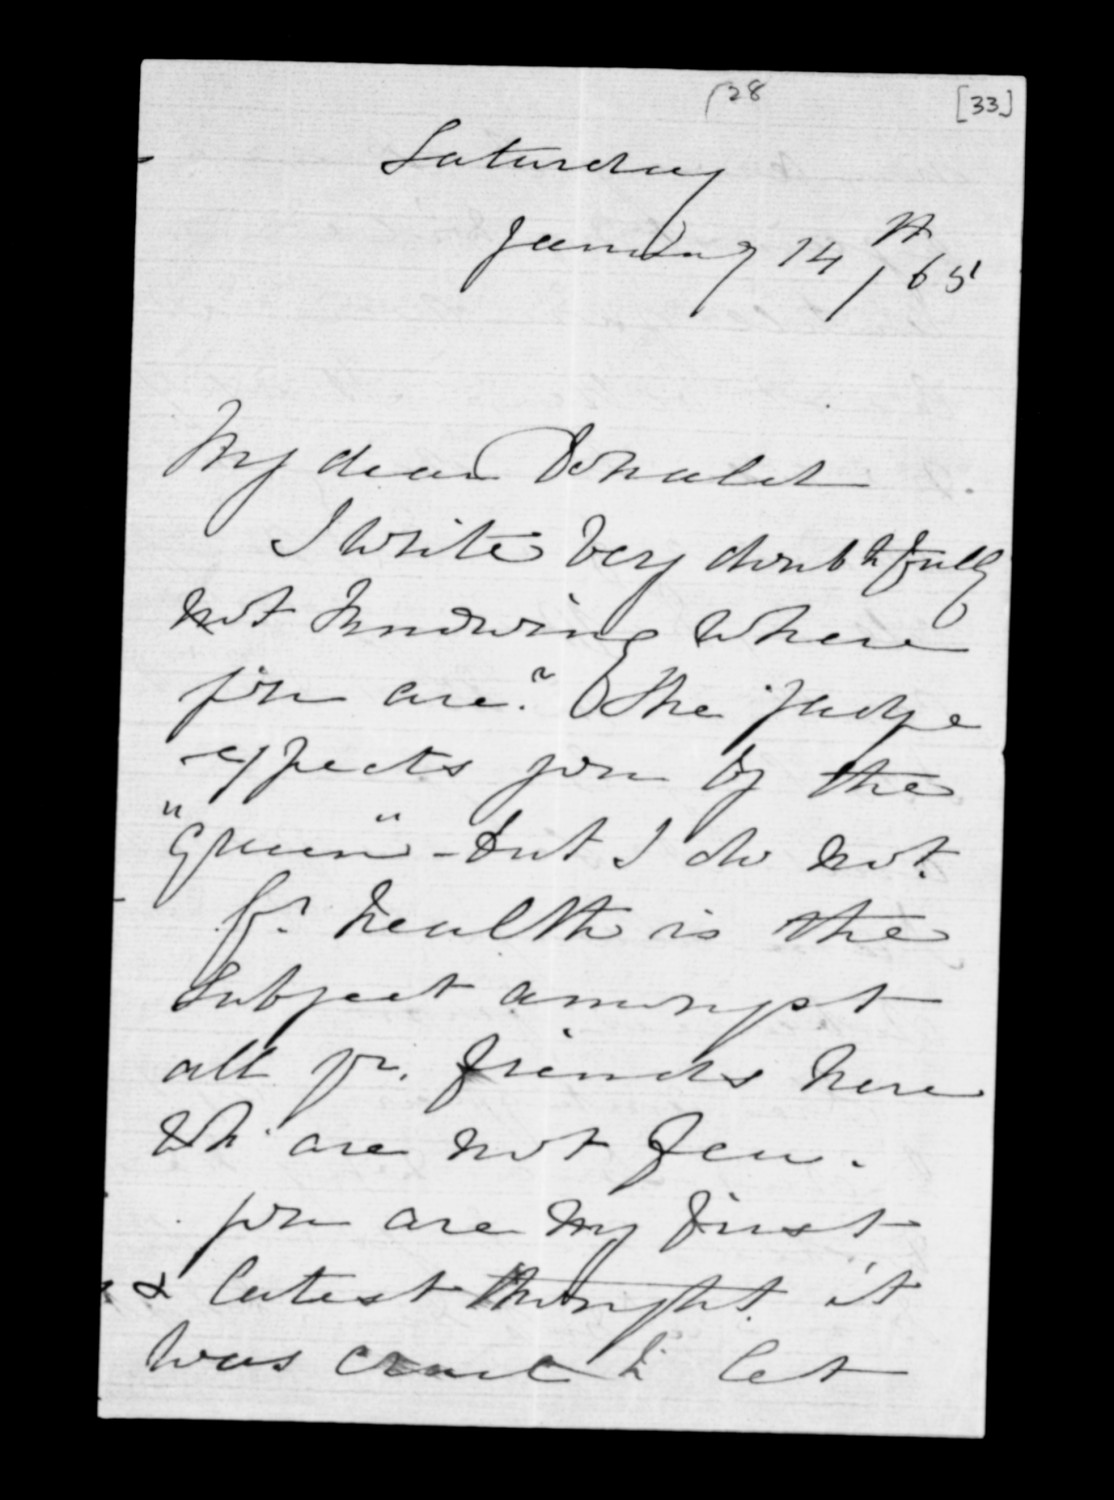 28 [33]
Saturday
January 14th / 65
My dear Donald
I write very doubtfully
not knowing where
you are? The judge
expects you by the
"Queen" - but I do not.
yr. health is the
subject amongst
all yr. friends here
wh. are not few.
you are my first
& latest thought it
was cruel to let